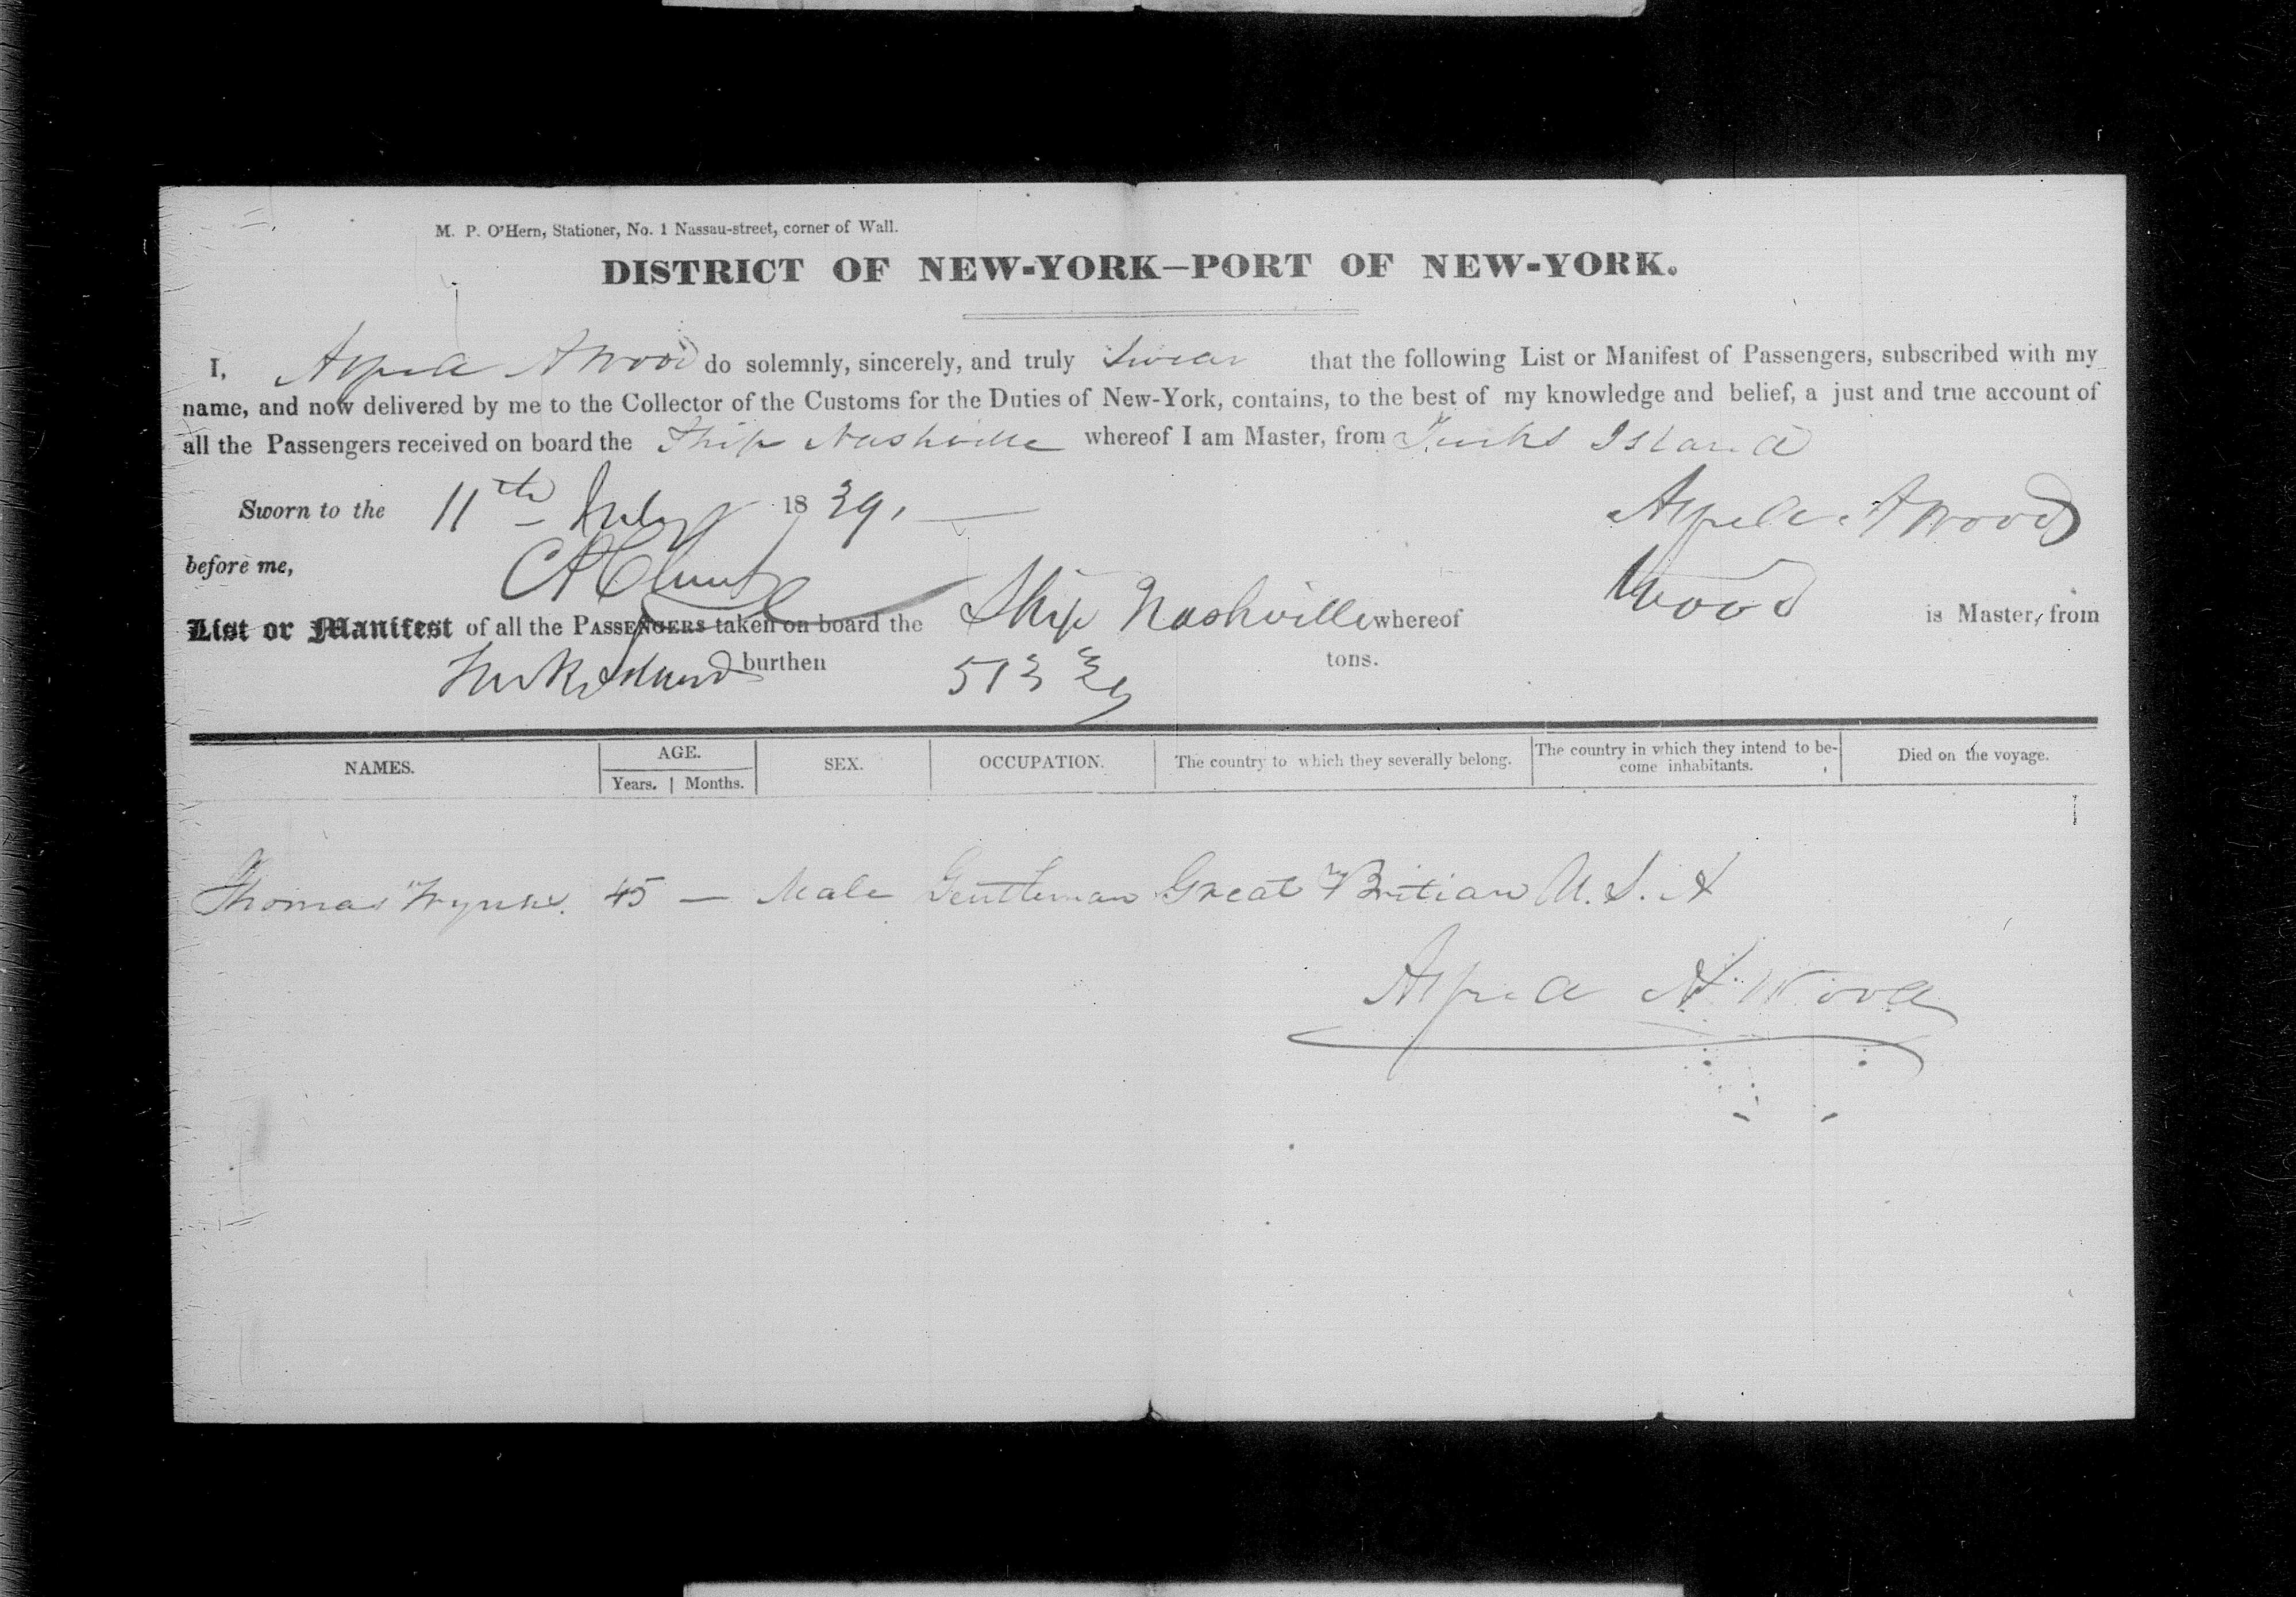 M. P. O'Hern, Stationer, No. 1 Nassau-street, corner of Wall.
DISTRICT OF NEW-YORK—PORT OF NEW-YORK.
I, Alfred A Wood do solemnly, sincerely, and truly Swear that the following List or Manifest of Passengers, subscribed with my
name, and now delivered by me to the Collector of the Customs for the Duties of New-York, contains, to the best of my knowledge and belief, a just and true account of
all the Passengers received on board the Ship Nashville whereof I am Master, from Turks Island
Sworn to the 11th July 1839, Alfred A Wood
before me,
List or Manifest of all the PASSENGERS taken on board the Ship Nashville whereof Wood is Master, from
Turks Island burthen 513 tons.
NAMES. AGE. SEX. OCCUPATION. The country to which they severally belong. The country in which they intend to be-come inhabitants. Died on the voyage.
Years. Months.
Thomas 45 — Male Gentleman Great Britian U.S.A
Alfred A Wood